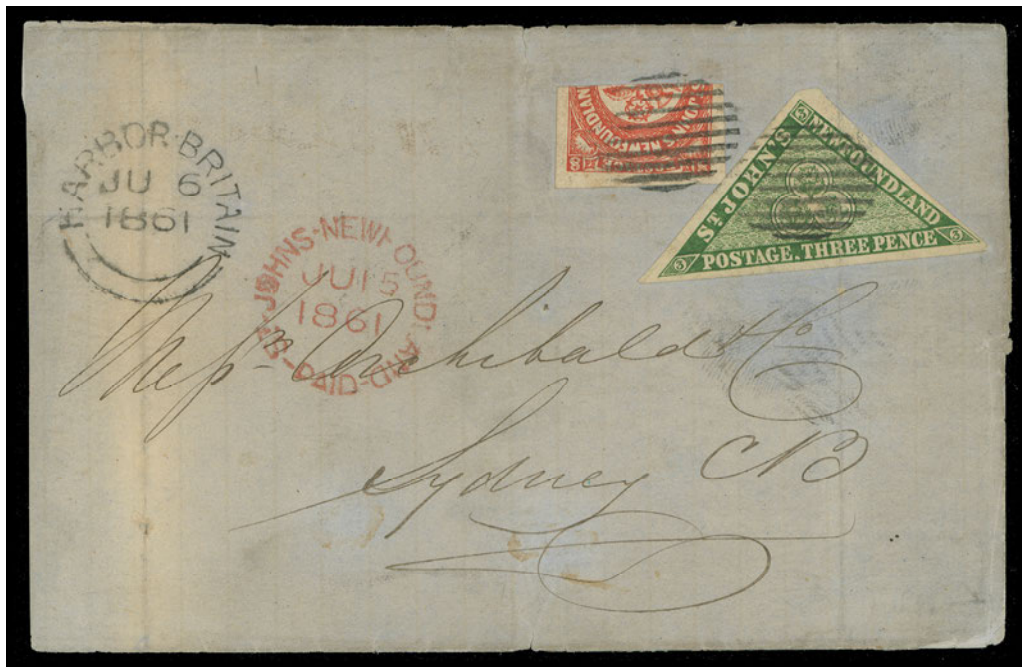 HARBOR·BRITAIN
JU 6
1861
ST JOHNS-NEWFOUNDLAND-PAID
JU 15
1861
ST JOHN'S NEWFOUNDLAND
3
ST JOHN'S
NEWFOUNDLAND
POSTAGE. THREE PENCE
3
3
Mess Archibald & Co
Sydney CB